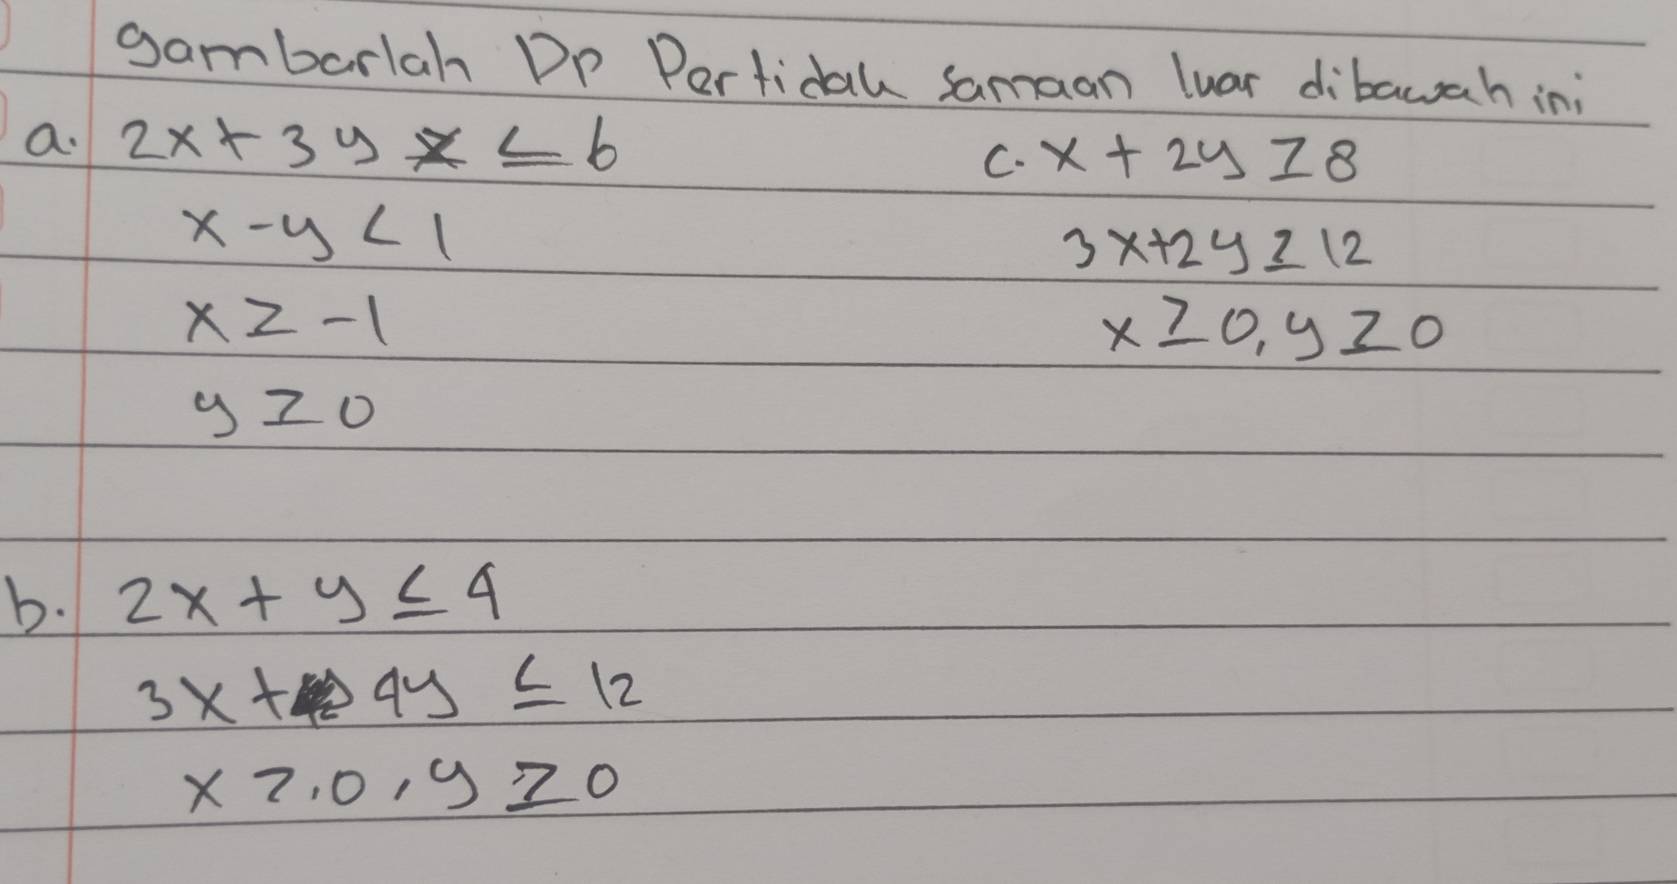 gambarlah Dp Pertidak samaan luar dibawah ini
a. 2x + 3y ≤ 6
x - y < 1
x ≥ -1
y ≥ 0
b. 2x + y ≤ 4
3x + 4y ≤ 12
x ≥ 0, y ≥ 0
c. x + 2y ≥ 8
3x + 2y ≥ 12
x ≥ 0, y ≥ 0